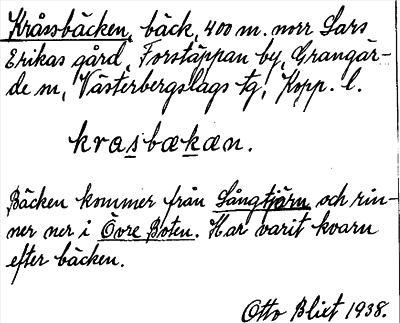 Kråssbäcken, bäck, 400 m. norr Lars
Erikas gård, Forstäppan by, Grangär-
de sn, Västerbergslags tg, Kopp. l.
krasbækæn.
Bäcken kommer från Långtjärn och rin-
ner ner i Övre Boten. Har varit kvarn
efter bäcken.
Otto Blixt 1938.